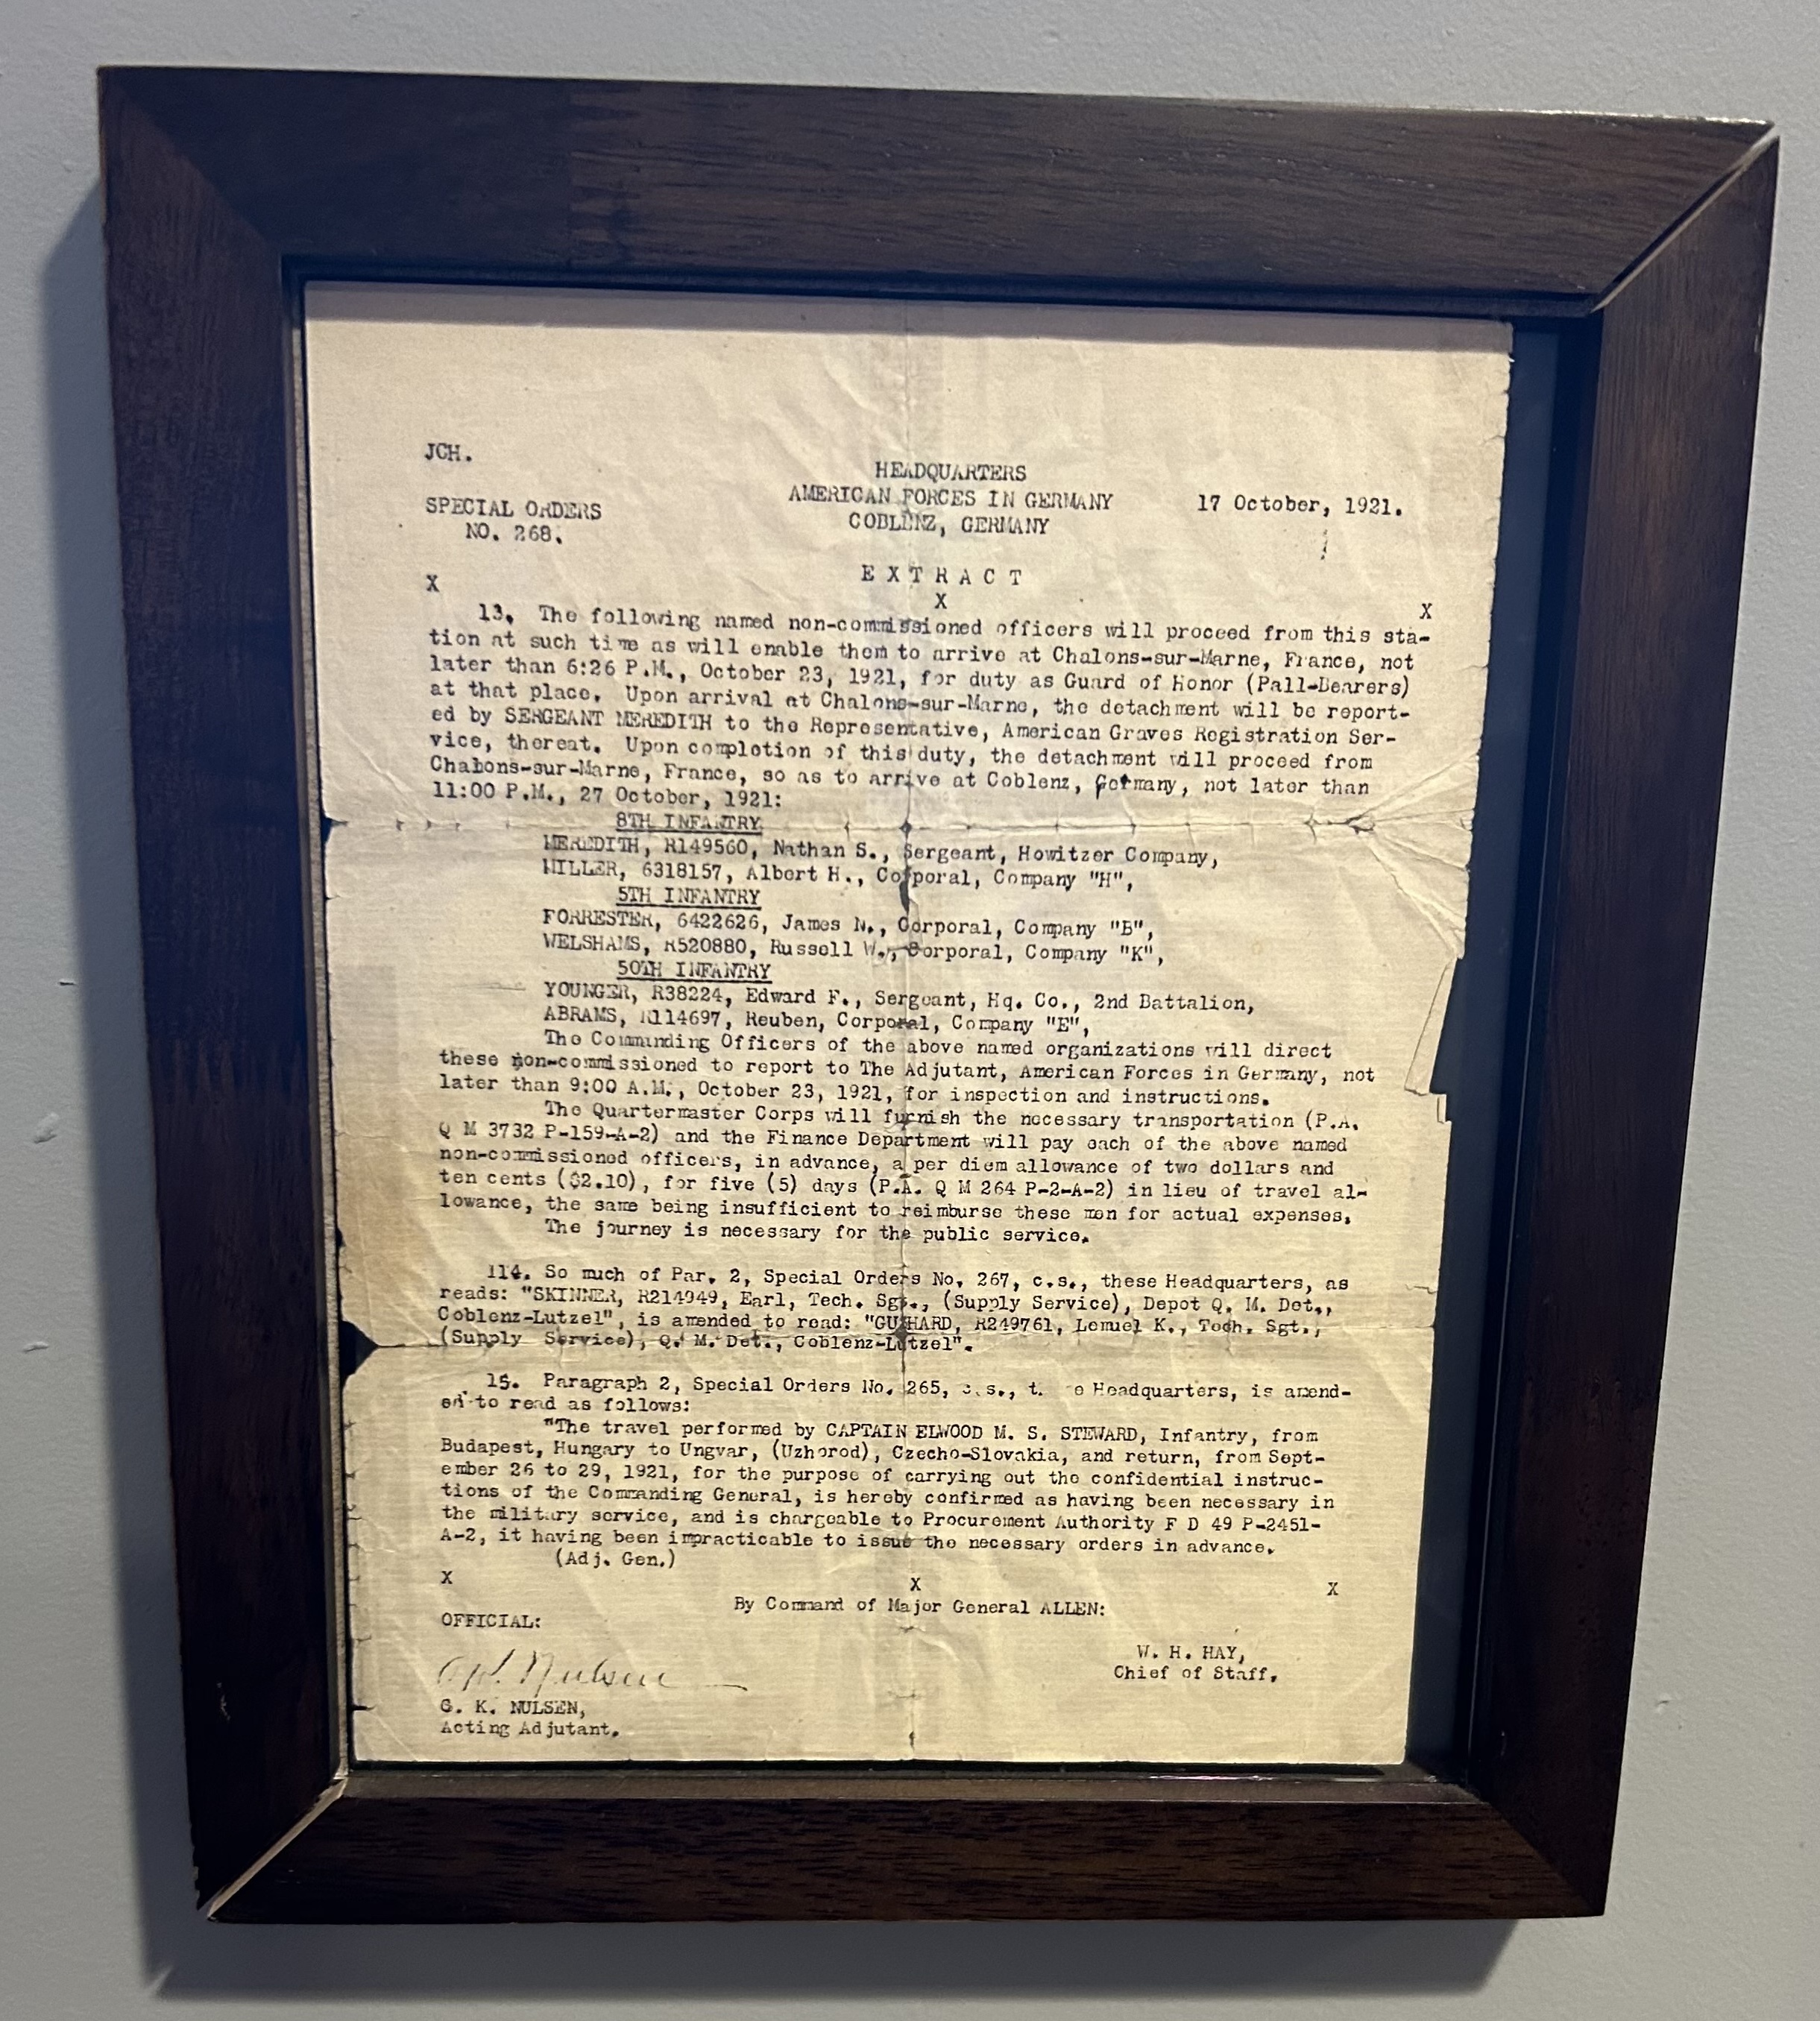 JCH.
HEADQUARTERS
AMERICAN FORCES IN GERMANY
COBLENZ, GERMANY
17 October, 1921.
SPECIAL ORDERS
NO. 268.
E X T R A C T
X X X
13. The following named non-commissioned officers will proceed from this sta-
tion at such time as will enable them to arrive at Chalons-sur-Marne, France, not
later than 6:26 P.M., October 23, 1921, for duty as Guard of Honor (Pall-Bearers)
at that place. Upon arrival at Chalons-sur-Marne, the detachment will be report-
ed by SERGEANT MEREDITH to the Representative, American Graves Registration Ser-
vice, thereat. Upon completion of this duty, the detachment will proceed from
Chabons-sur-Marne, France, so as to arrive at Coblenz, Germany, not later than
11:00 P.M., 27 October, 1921:
8TH INFANTRY
MEREDITH, R149560, Nathan S., Sergeant, Howitzer Company,
MILLER, 6318157, Albert H., Corporal, Company "H",
5TH INFANTRY
FORRESTER, 6422626, James N., Corporal, Company "B",
WELSHAMS, R520880, Russell W., Corporal, Company "K",
50TH INFANTRY
YOUNGER, R38224, Edward F., Sergeant, Hq. Co., 2nd Battalion,
ABRAMS, R114697, Reuben, Corporal, Company "E",
The Commanding Officers of the above named organizations will direct
these non-commissioned to report to The Adjutant, American Forces in Germany, not
later than 9:00 A.M., October 23, 1921, for inspection and instructions.
The Quartermaster Corps will furnish the necessary transportation (P.A.
Q M 3732 P-159-A-2) and the Finance Department will pay each of the above named
non-commissioned officers, in advance, a per diem allowance of two dollars and
ten cents ($2.10), for five (5) days (P.A. Q M 264 P-2-A-2) in lieu of travel al-
lowance, the same being insufficient to reimburse these men for actual expenses.
The journey is necessary for the public service.
114. So much of Par. 2, Special Orders No. 267, c.s., these Headquarters, as
reads: "SKINNER, R214949, Earl, Tech. Sgt., (Supply Service), Depot Q. M. Det.,
Coblenz-Lutzel", is amended to read: R249761, Lemuel K., Tech. Sgt.,
(Supply Service), Q. M. Det., Coblenz-Lutzel".
15. Paragraph 2, Special Orders No. 265, c.s., Headquarters, is amend-
ed to read as follows:
"The travel performed by CAPTAIN ELWOOD M. S. STEWARD, Infantry, from
Budapest, Hungary to Ungvar, (Uzhorod), Czecho-Slovakia, and return, from Sept-
ember 26 to 29, 1921, for the purpose of carrying out the confidential instruc-
tions of the Commanding General, is hereby confirmed as having been necessary in
the military service, and is chargeable to Procurement Authority F D 49 P-2451-
A-2, it having been impracticable to issue the necessary orders in advance.
(Adj. Gen.)
X X X
By Command of Major General ALLEN:
OFFICIAL:
W. H. HAY,
Chief of Staff.
G. K. Nulsen
G. K. NULSEN,
Acting Adjutant.